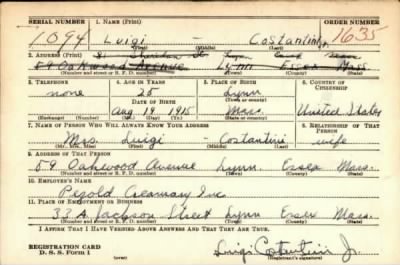 SERIAL NUMBER 1. NAME (Print) ORDER NUMBER
1094 Luigi - Costantini, Jr. 1635
(First) (Middle) (Last)
2. ADDRESS (Print)
Sheridan St. Lynn Essex Mass
59 Oakwood Avenue Lynn Essex Mass.
(Number and street or R. F. D. number) (Town) (County) (State)
3. TELEPHONE 4. AGE IN YEARS 5. PLACE OF BIRTH 6. COUNTRY OF CITIZENSHIP
none 25 Lynn
DATE OF BIRTH (Town or county)
Aug 19 1915 Mass. United States
(Exchange) (Number) (Mo.) (Day) (Yr.) (State or country)
7. NAME OF PERSON WHO WILL ALWAYS KNOW YOUR ADDRESS 8. RELATIONSHIP OF THAT PERSON
Mrs. Luigi - Costantini wife
(Mr., Mrs., Miss) (First) (Middle) (Last)
9. ADDRESS OF THAT PERSON
59 Oakwood Avenue Lynn Essex Mass.
(Number and street or R. F. D. number) (Town) (County) (State)
10. EMPLOYER'S NAME
Creamery Inc
11. PLACE OF EMPLOYMENT OR BUSINESS
33 A. Jackson Street Lynn Essex Mass.
(Number and street or R. F. D. number) (Town) (County) (State)
I AFFIRM THAT I HAVE VERIFIED ABOVE ANSWERS AND THAT THEY ARE TRUE.
REGISTRATION CARD
D. S. S. Form 1 Luigi Costantini Jr.
(Registrant's signature)